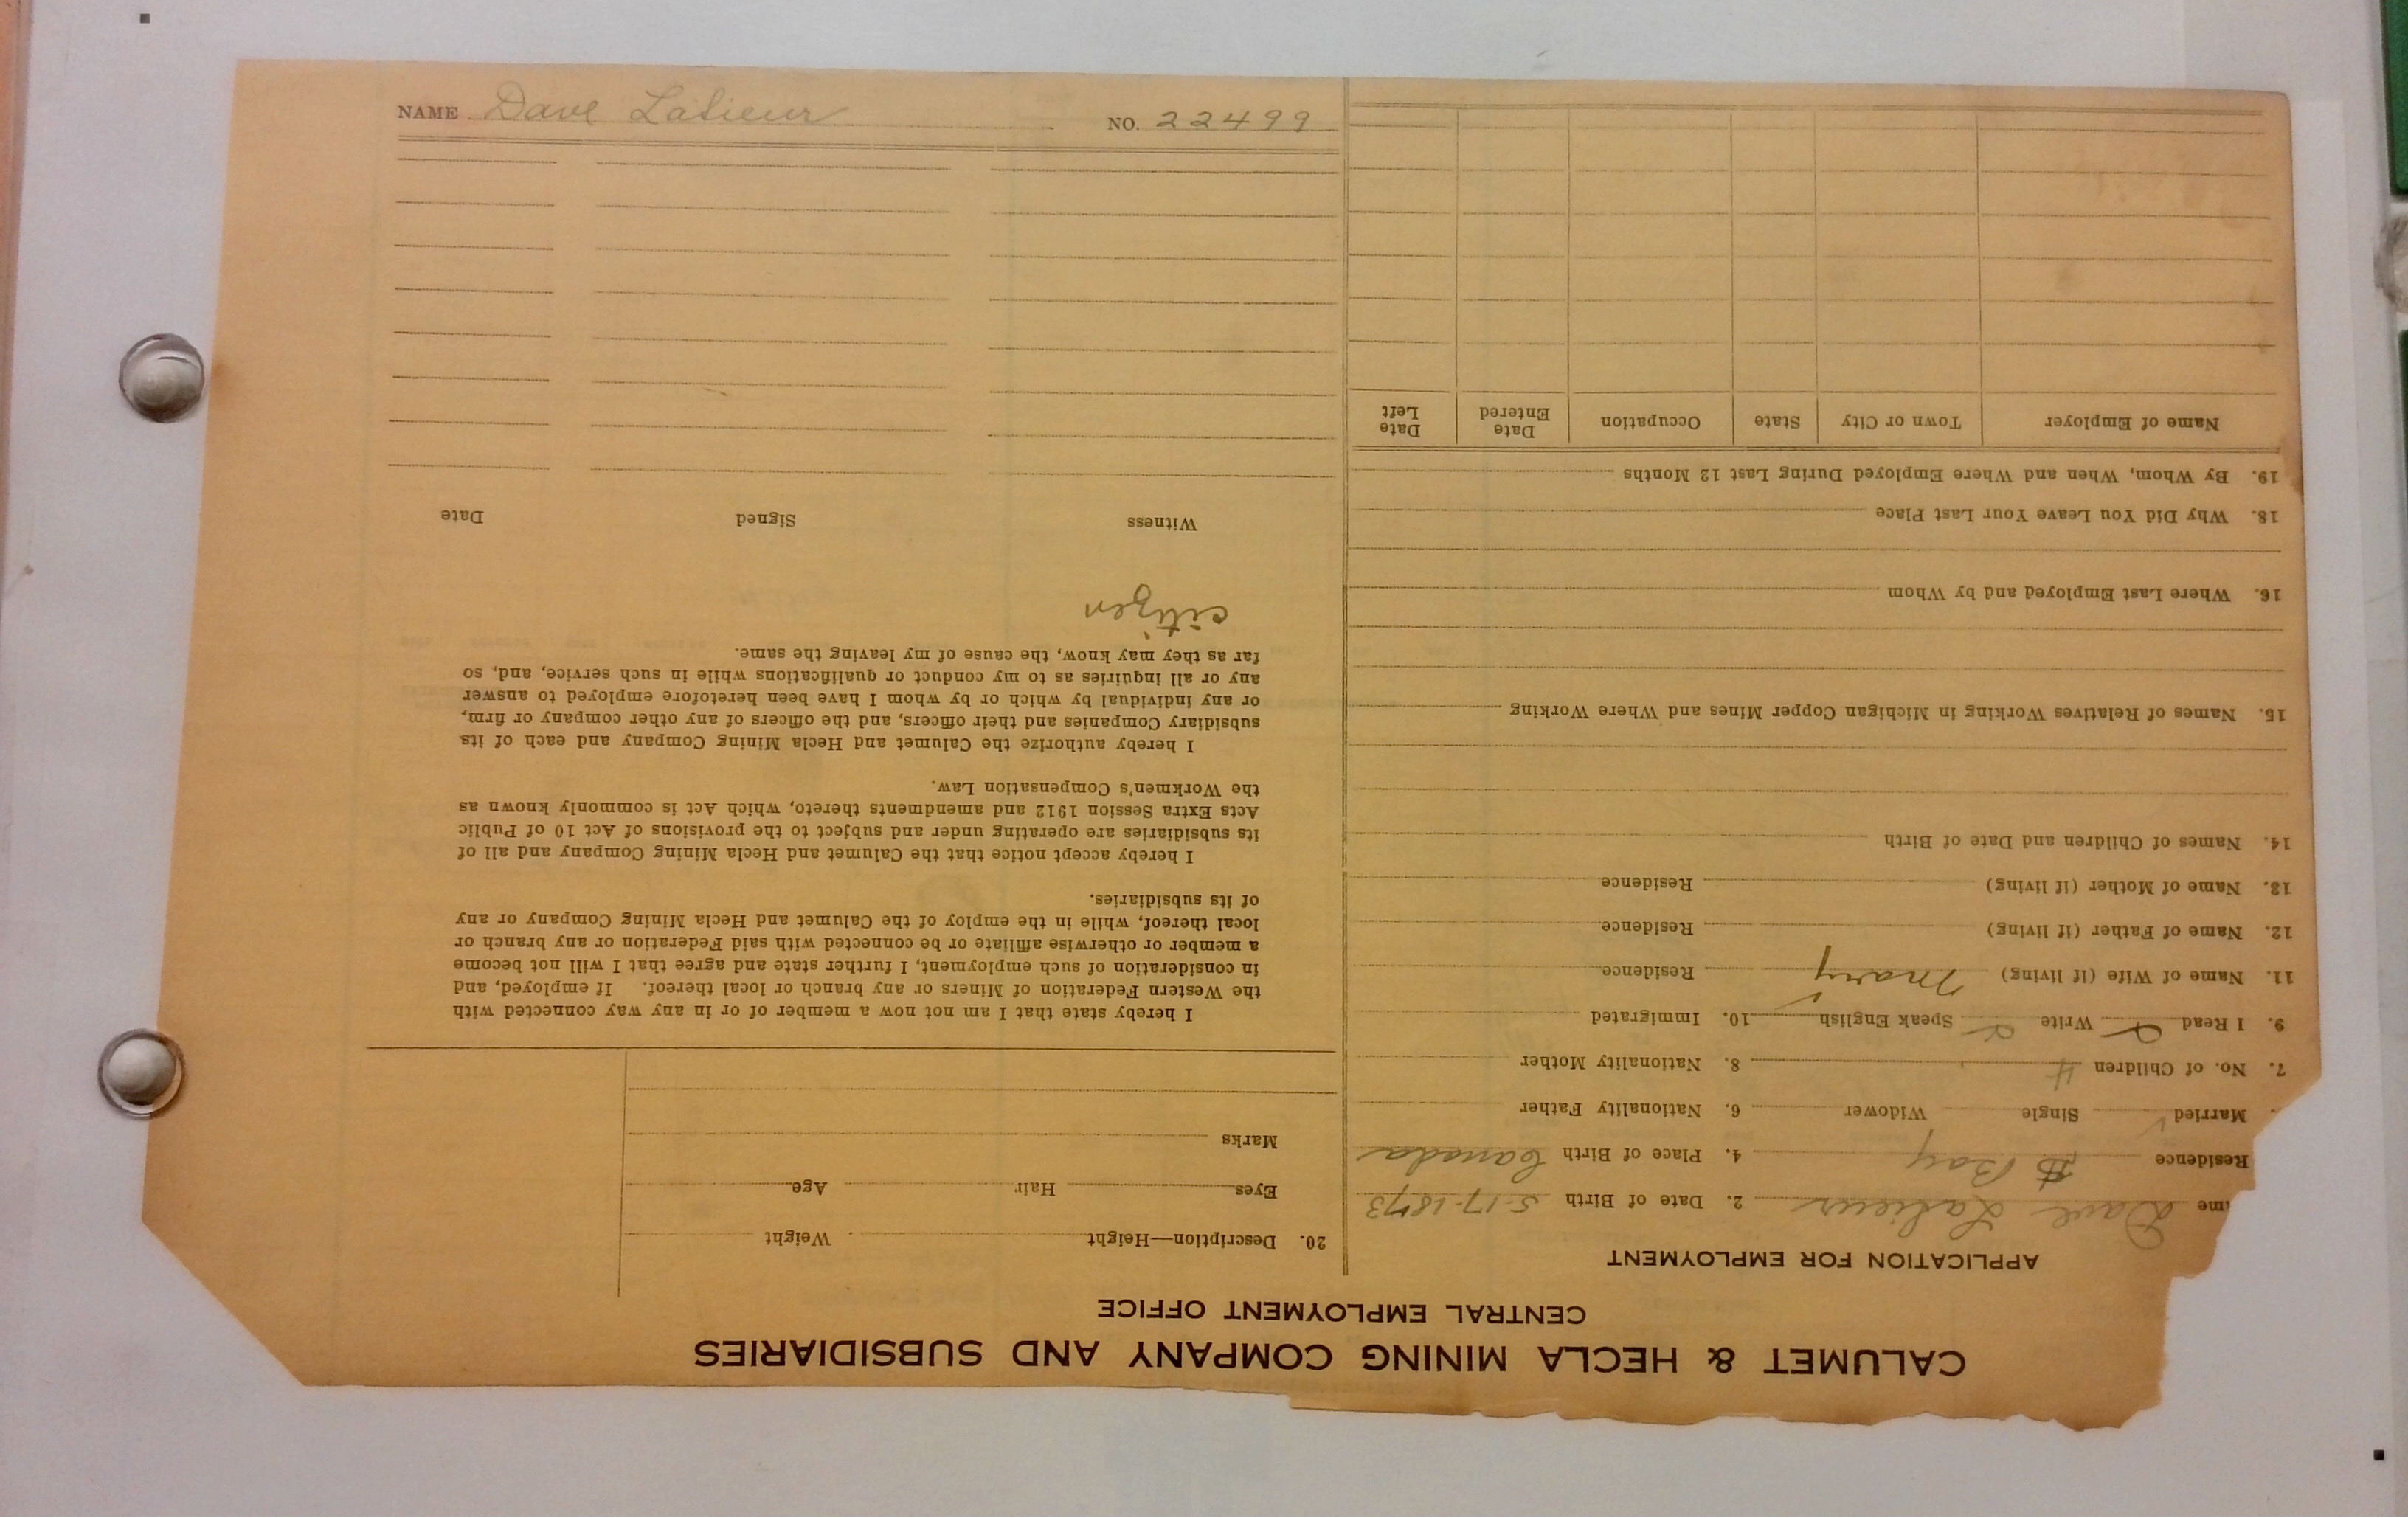 CALUMET & HECLA MINING COMPANY AND SUBSIDIARIES
CENTRAL EMPLOYMENT OFFICE
APPLICATION FOR EMPLOYMENT
me Dave 2. Date of Birth 5-17-1873
Residence Bay 4. Place of Birth Canada
Married ✓ Single Widower 6. Nationality Father
7. No. of Children 4 8. Nationality Mother
9. I Read Write Speak English ✓ 10. Immigrated
11. Name of Wife (if living) Mary Residence
12. Name of Father (if living) Residence
13. Name of Mother (if living) Residence
14. Names of Children and Date of Birth
15. Names of Relatives Working in Michigan Copper Mines and Where Working
16. Where Last Employed and by Whom
18. Why Did You Leave Your Last Place
19. By Whom, When and Where Employed During Last 12 Months
Name of Employer Town or City State Occupation Date Entered Date Left
20. Description—Height Weight
Eyes Hair Age
Marks
I hereby state that I am not now a member of or in any way connected with
the Western Federation of Miners or any branch or local thereof. If employed, and
in consideration of such employment, I further state and agree that I will not become
a member or otherwise affiliate or be connected with said Federation or any branch or
local thereof, while in the employ of the Calumet and Hecla Mining Company or any
of its subsidiaries.
I hereby accept notice that the Calumet and Hecla Mining Company and all of
its subsidiaries are operating under and subject to the provisions of Act 10 of Public
Acts Extra Session 1912 and amendments thereto, which Act is commonly known as
the Workmen's Compensation Law.
I hereby authorize the Calumet and Hecla Mining Company and each of its
subsidiary Companies and their officers, and the officers of any other company or firm,
or any individual by which or by whom I have been heretofore employed to answer
any or all inquiries as to my conduct or qualifications while in such service, and, so
far as they may know, the cause of my leaving the same.
citizen
Witness Signed Date
NAME Dave NO. 22499